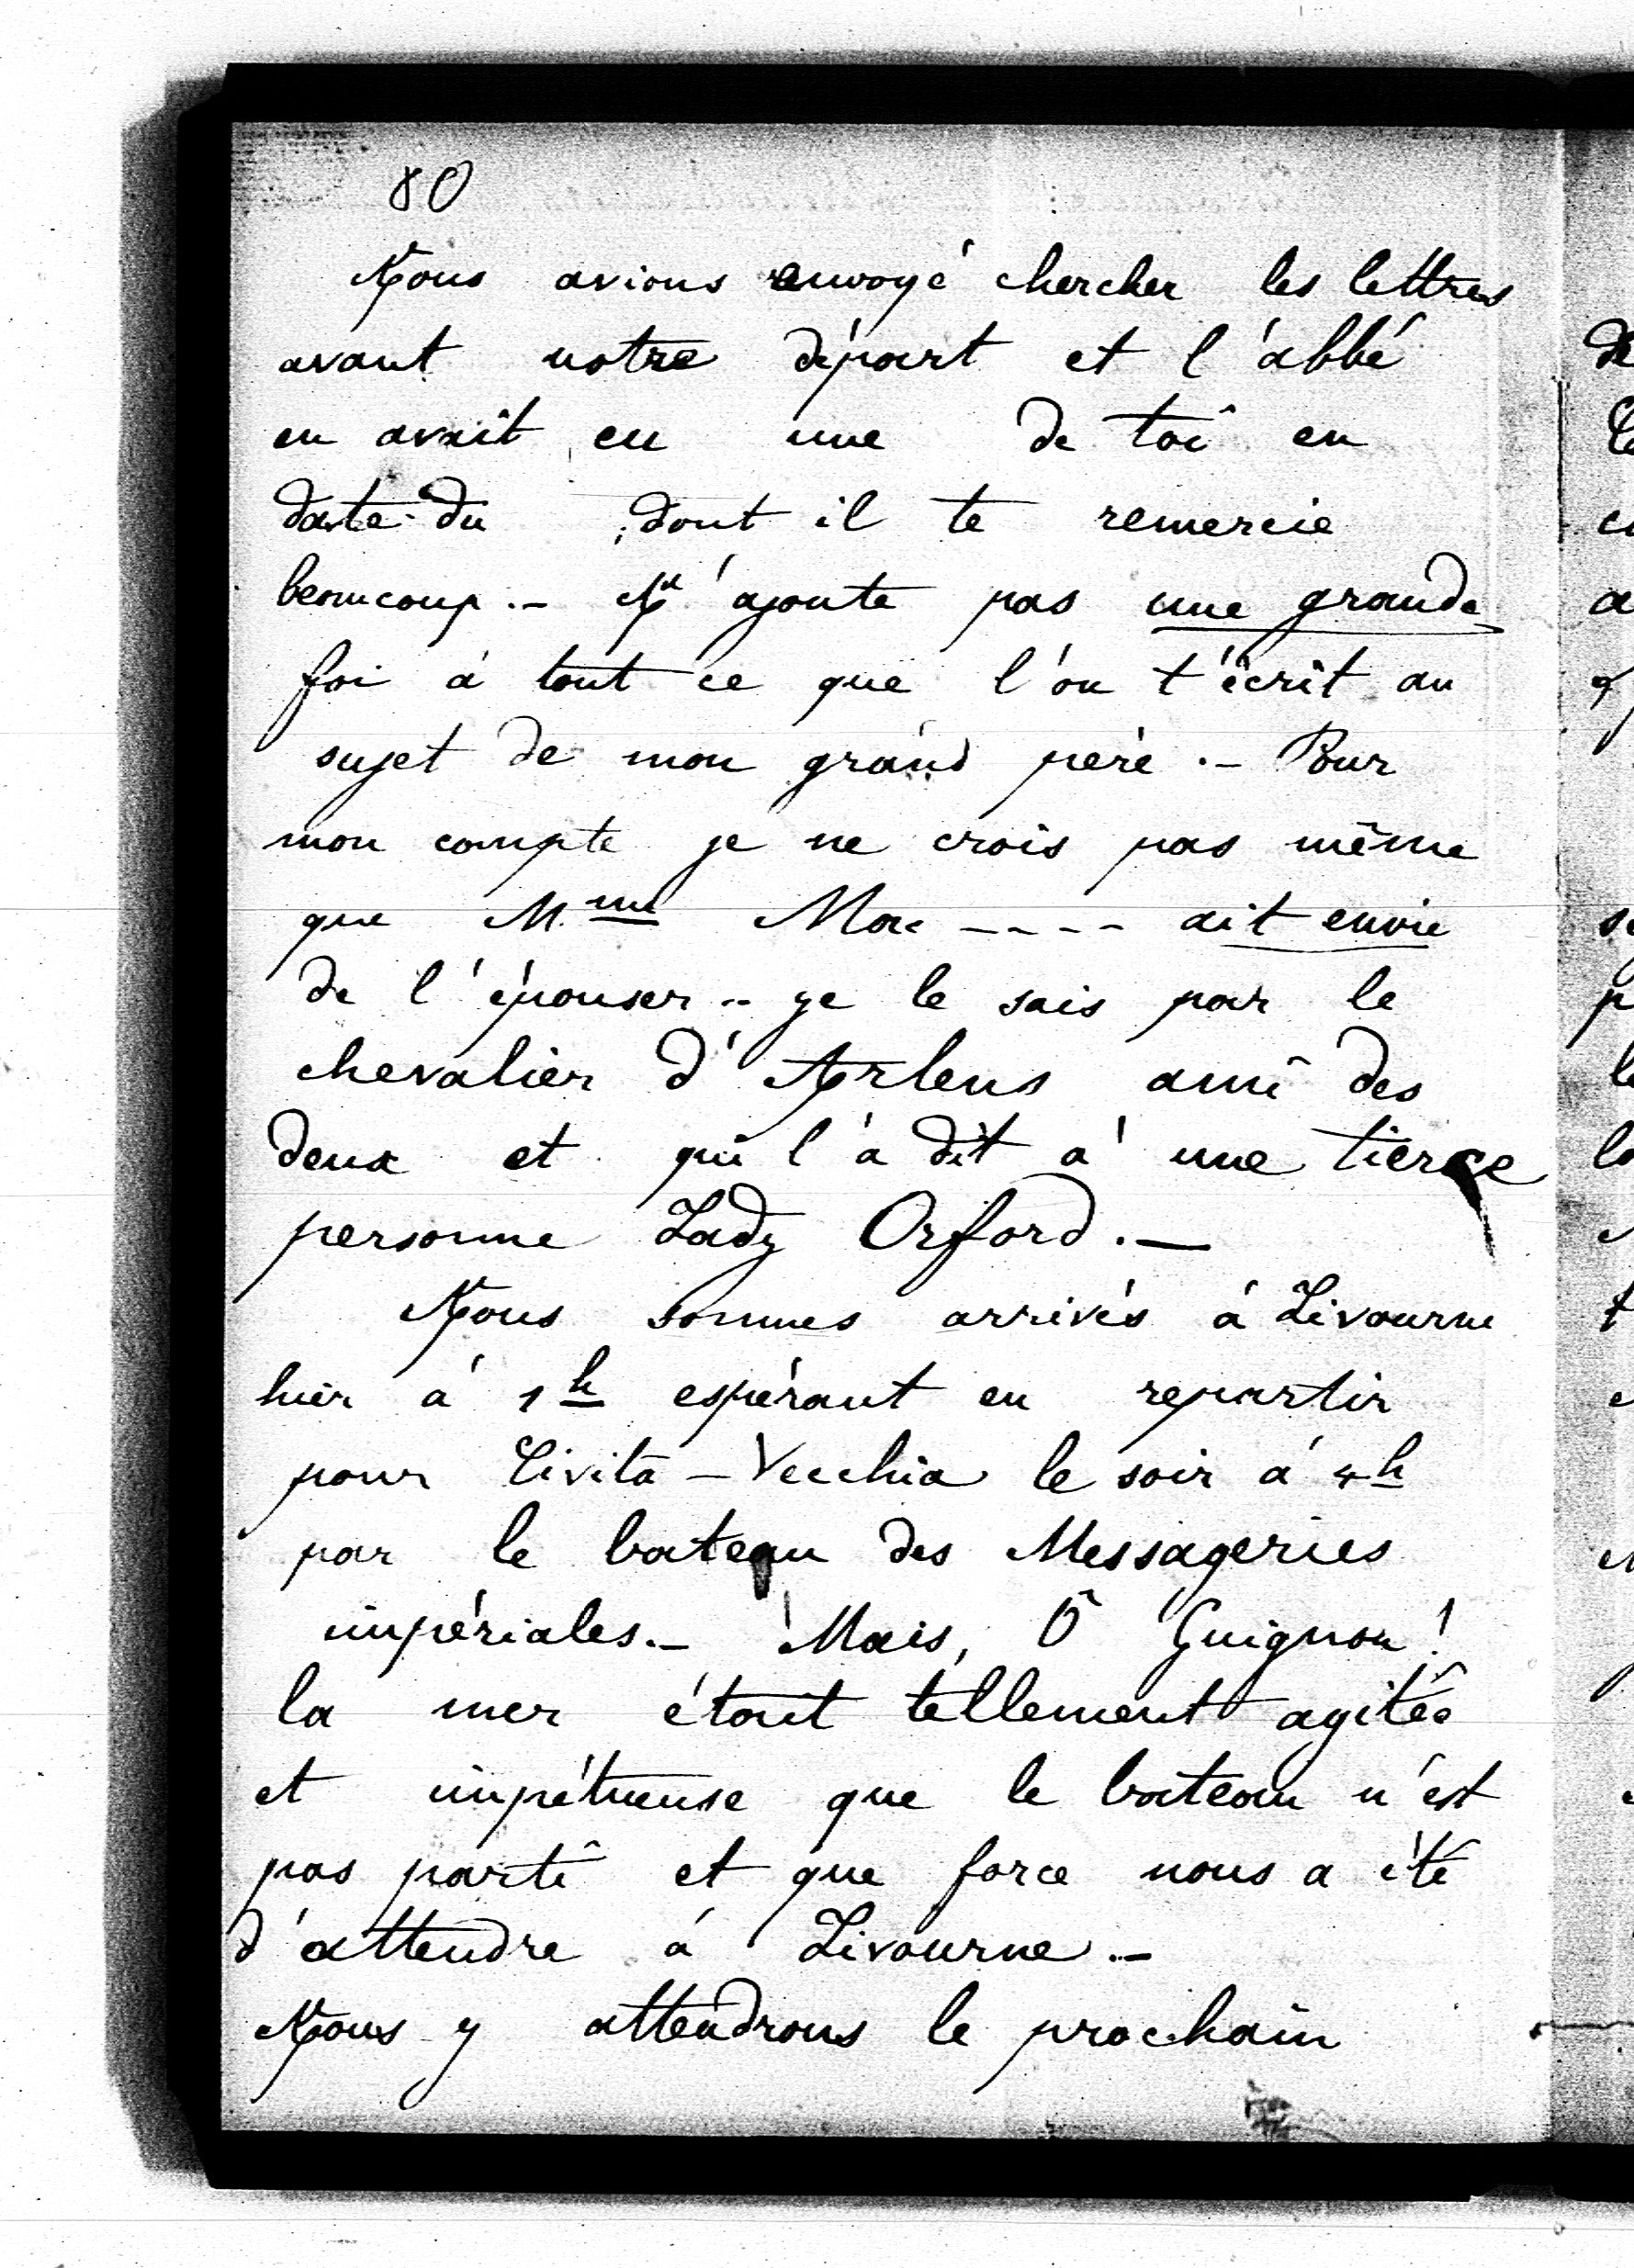 80
Nous avions renvoyé chercher les lettres
avant notre départ et l'abbé
en avait eu une de toi en
date du dont il te remercie
beaucoup. - N'ajoute pas une grande
foi à tout ce que l'on t'écrit au
sujet de mon grand père. - Pour
mon compte je ne crois pas même
que Mme Mac ---- ait envie
de l'épouser - je le sais par le
chevalier d'Arlens ami des
deux et qui l'a dit à une tierce
personne Lady Orford. -
Nous sommes arrivés à Livourne
hier à 1h espérant en repartir
pour Civita-Vecchia le soir à 4h
par le bateau des Messageries
impériales. - Mais, Ô Guignon !
la mer était tellement agitée
et impétueuse que le bateau n'est
pas parti et que force nous a été
d'attendre à Livourne. -
Nous y attendrons le prochain